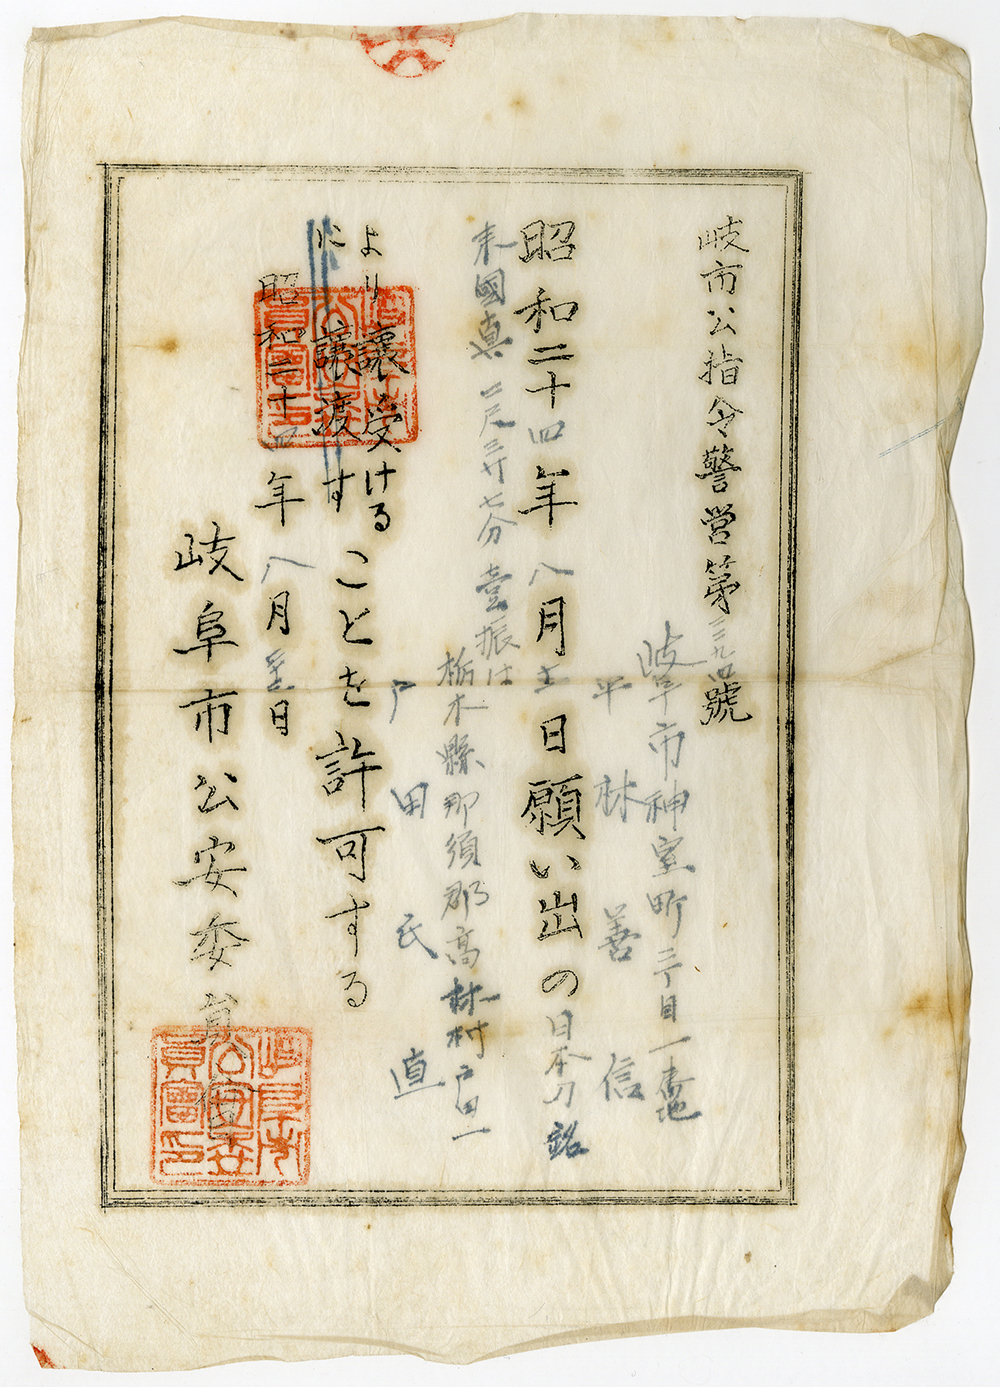 岐市公指令警営第三九四號
岐阜市神室町三丁目一番地
平林善信
昭和二十四年八月十一日願い出の日本刀銘
来國真二尺三寸七分壹振は
栃木縣那須郡高林村戸田一
戸田氏直
より譲受ける
に譲渡す
ことを許可する
昭和二十四年八月 日
岐阜市公安委員會
岐阜市公安委員會印
岐阜市公安委員會印